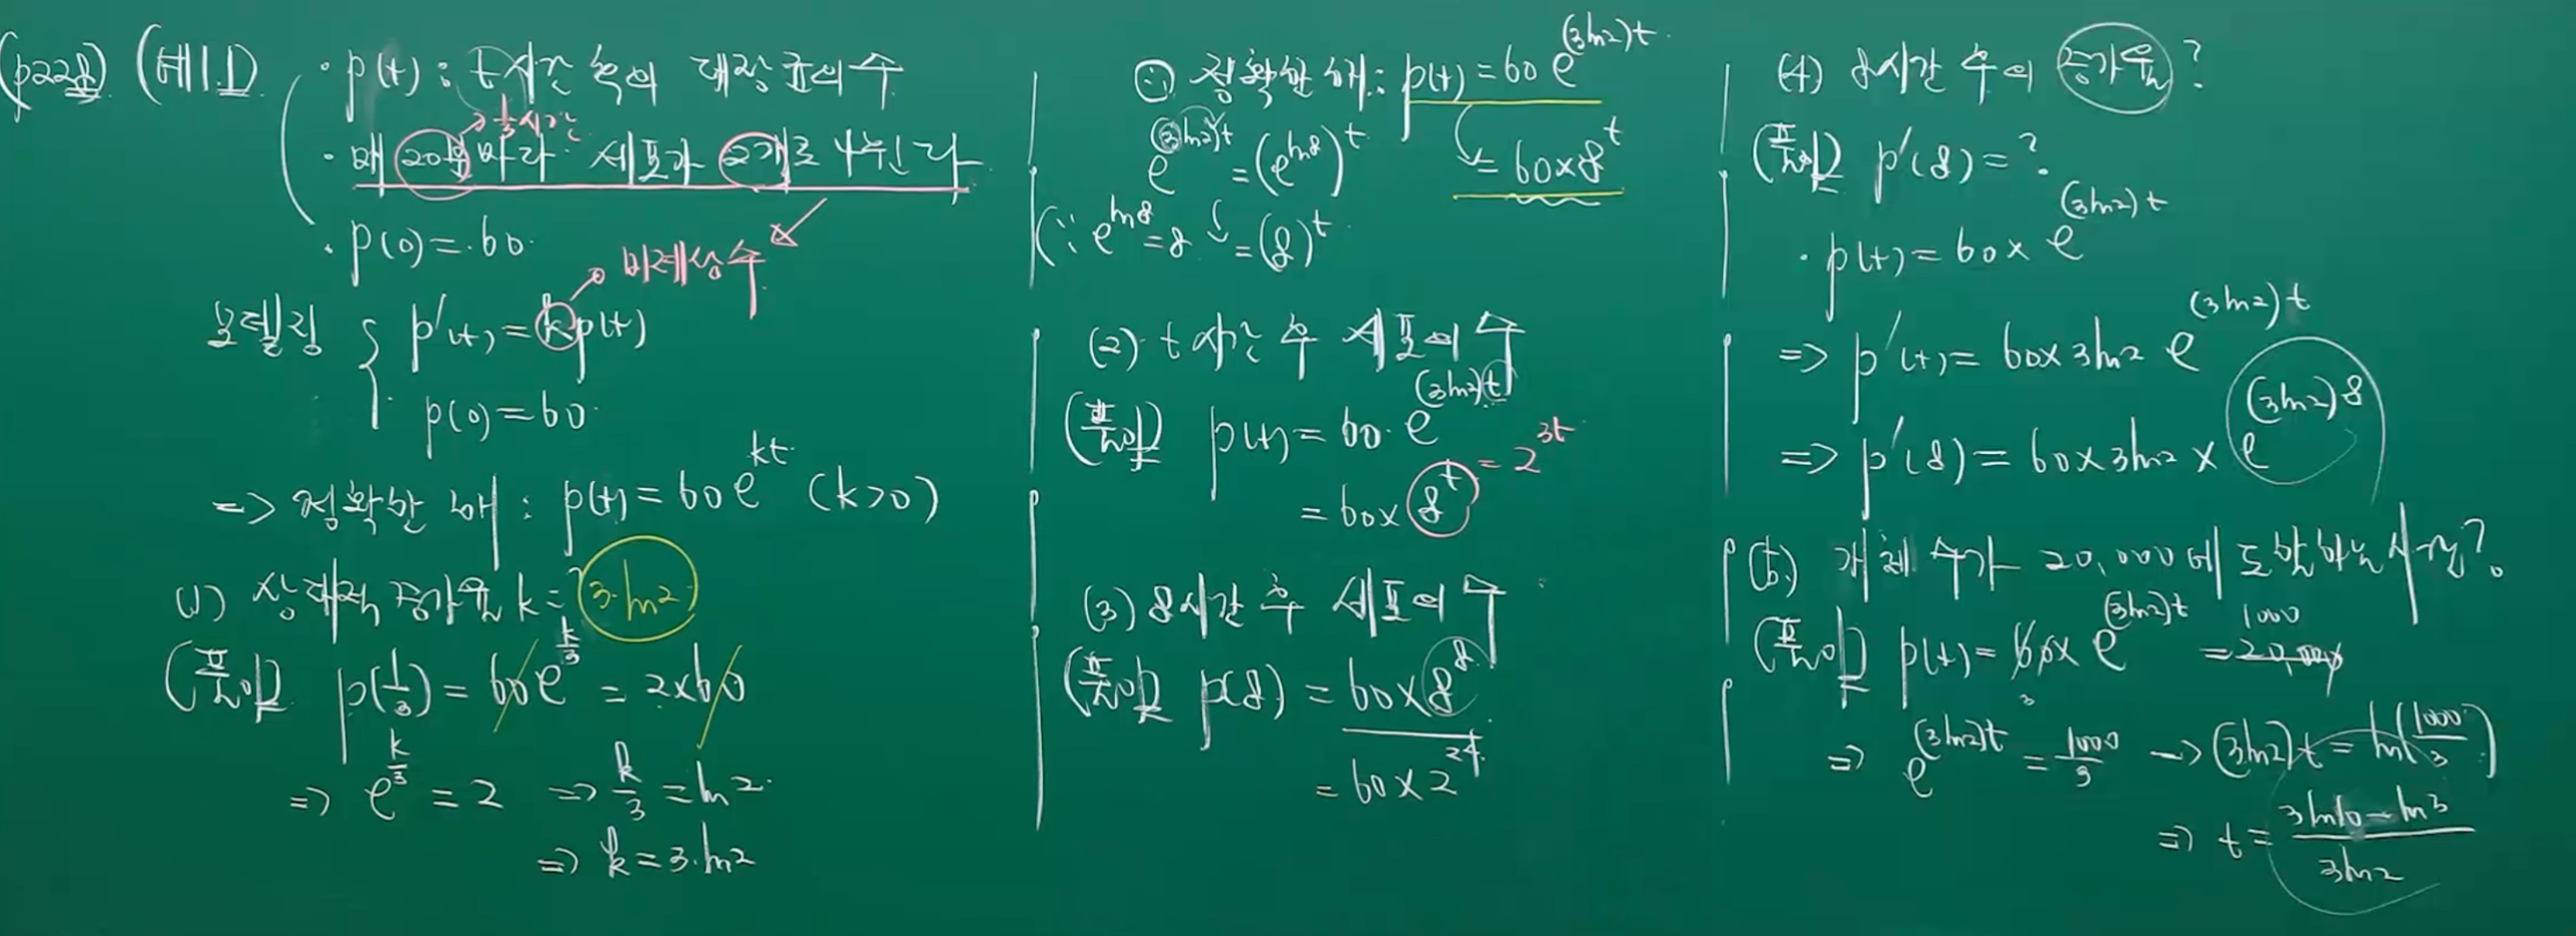 (p228) (예1.1)
· p(t) : t시간 후의 대장균의 수
→ 1/3시간
· 매 20분마다 세포가 2개로 나뉜다
· p(0) = 60
→ 비례상수
모델링 { p'(t) = k p(t)
p(0) = 60
=> 정확한 해 : p(t) = 60e^{kt} (k>0)
(1) 상대적 증가율 k = ? 3·ln2
(풀이) p(1/3) = 60e^{k/3} = 2×60
=> e^{k/3} = 2 => k/3 = ln2
=> k = 3·ln2
∴ 정확한 해 : p(t) = 60 e^{(3ln2)t}
= 60×8^t
e^{(3ln2)t} = (e^{ln8})^t
(∵ e^{ln8} = 8 = (8)^t
(2) t시간 후 세포의 수
(풀이) p(t) = 60·e^{(3ln2)t}
= 60×8^t = 2^{3t}
(3) 8시간 후 세포의 수
(풀이) p(8) = 60×8^8
= 60×2^{24}
(4) 8시간 후의 증가율?
(풀이) p'(8) = ?
· p(t) = 60× e^{(3ln2)t}
=> p'(t) = 60×3ln2 e^{(3ln2)t}
=> p'(8) = 60×3ln2 × e^{(3ln2)8}
(5) 개체수가 20,000에 도달하는 시간?
(풀이) p(t) = 60× e^{(3ln2)t} = 20,000
3 1000
=> e^{(3ln2)t} = 1000/3 → (3ln2)t = ln(1000/3)
=> t = (3ln10 − ln3)/(3ln2)